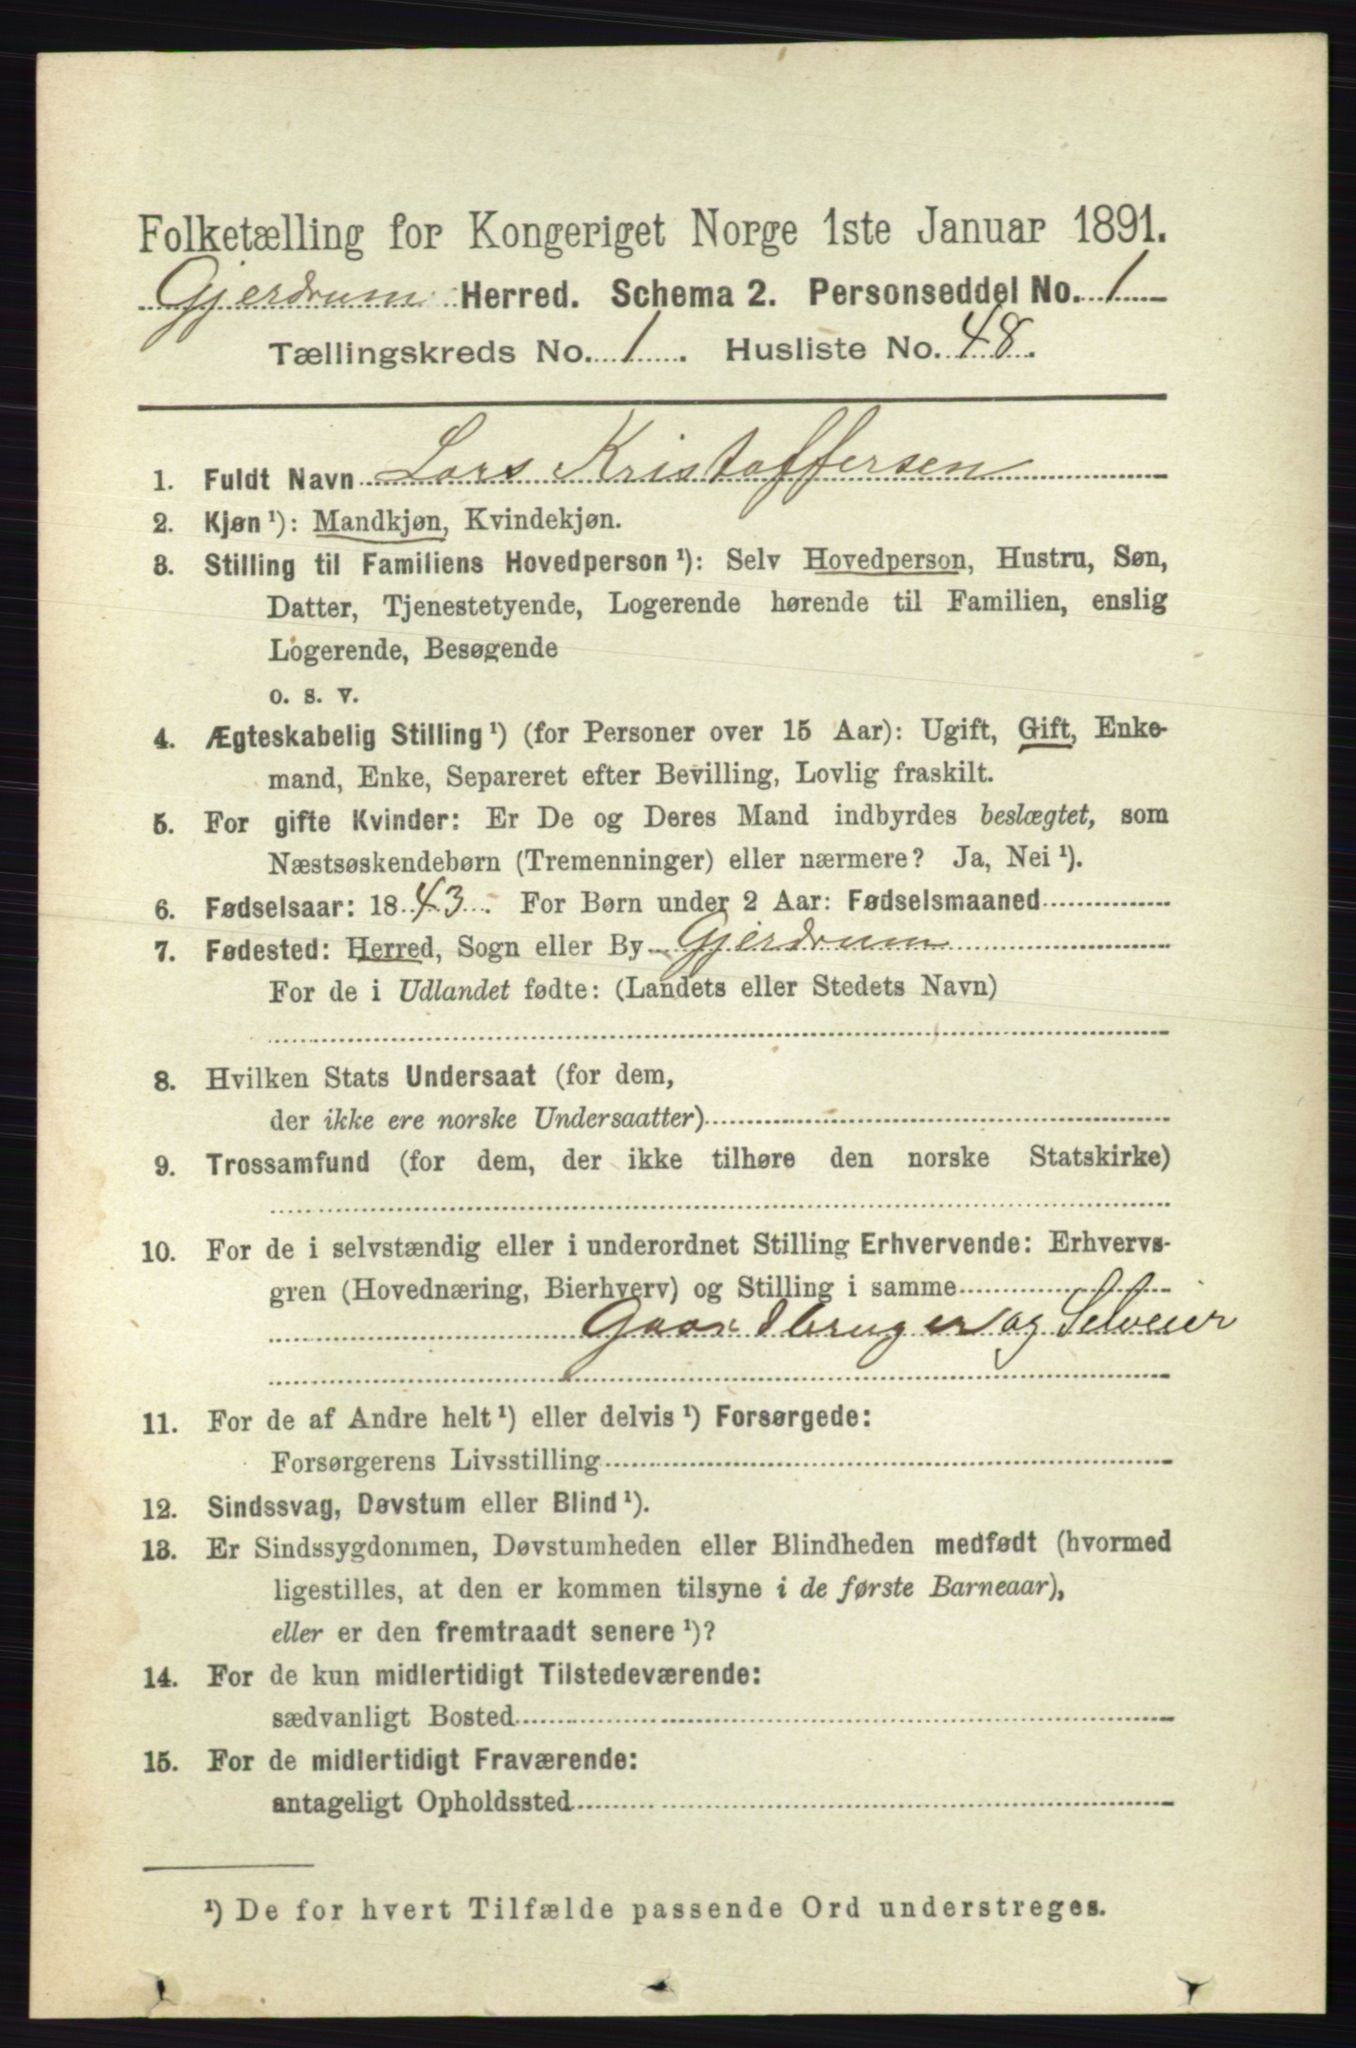 Folketælling for Kongeriget Norge 1ste Januar 1891.
Gjerdrum Herred. Schema 2. Personseddel No. 1
Tællingskreds No. 1. Husliste No. 48.
1. Fuldt Navn Lars Kristoffersen
2. Kjøn ¹): Mandkjøn, Kvindekjøn.
3. Stilling til Familiens Hovedperson ¹): Selv Hovedperson, Hustru, Søn,
Datter, Tjenestetyende, Logerende hørende til Familien, enslig
Logerende, Besøgende
o. s. v.
4. Ægteskabelig Stilling ¹) (for Personer over 15 Aar): Ugift, Gift, Enke-
mand, Enke, Separeret efter Bevilling, Lovlig fraskilt.
5. For gifte Kvinder: Er De og Deres Mand indbyrdes beslægtet, som
Næstsøskendebørn (Tremenninger) eller nærmere? Ja, Nei ¹).
6. Fødselsaar: 1843. For Børn under 2 Aar: Fødselsmaaned
7. Fødested: Herred, Sogn eller By Gjerdrum
For de i Udlandet fødte: (Landets eller Stedets Navn)
8. Hvilken Stats Undersaat (for dem,
der ikke ere norske Undersaatter)
9. Trossamfund (for dem, der ikke tilhøre den norske Statskirke)
10. For de i selvstændig eller i underordnet Stilling Erhvervende: Erhvervs-
gren (Hovednæring, Bierhverv) og Stilling i samme
Gaardbruger og Selveier
11. For de af Andre helt ¹) eller delvis ¹) Forsørgede:
Forsørgerens Livsstilling
12. Sindssvag, Døvstum eller Blind ¹).
13. Er Sindssygdommen, Døvstumheden eller Blindheden medfødt (hvormed
ligestilles, at den er kommen tilsyne i de første Barneaar),
eller er den fremtraadt senere ¹)?
14. For de kun midlertidigt Tilstedeværende:
sædvanligt Bosted
15. For de midlertidigt Fraværende:
antageligt Opholdssted
¹) De for hvert Tilfælde passende Ord understreges.